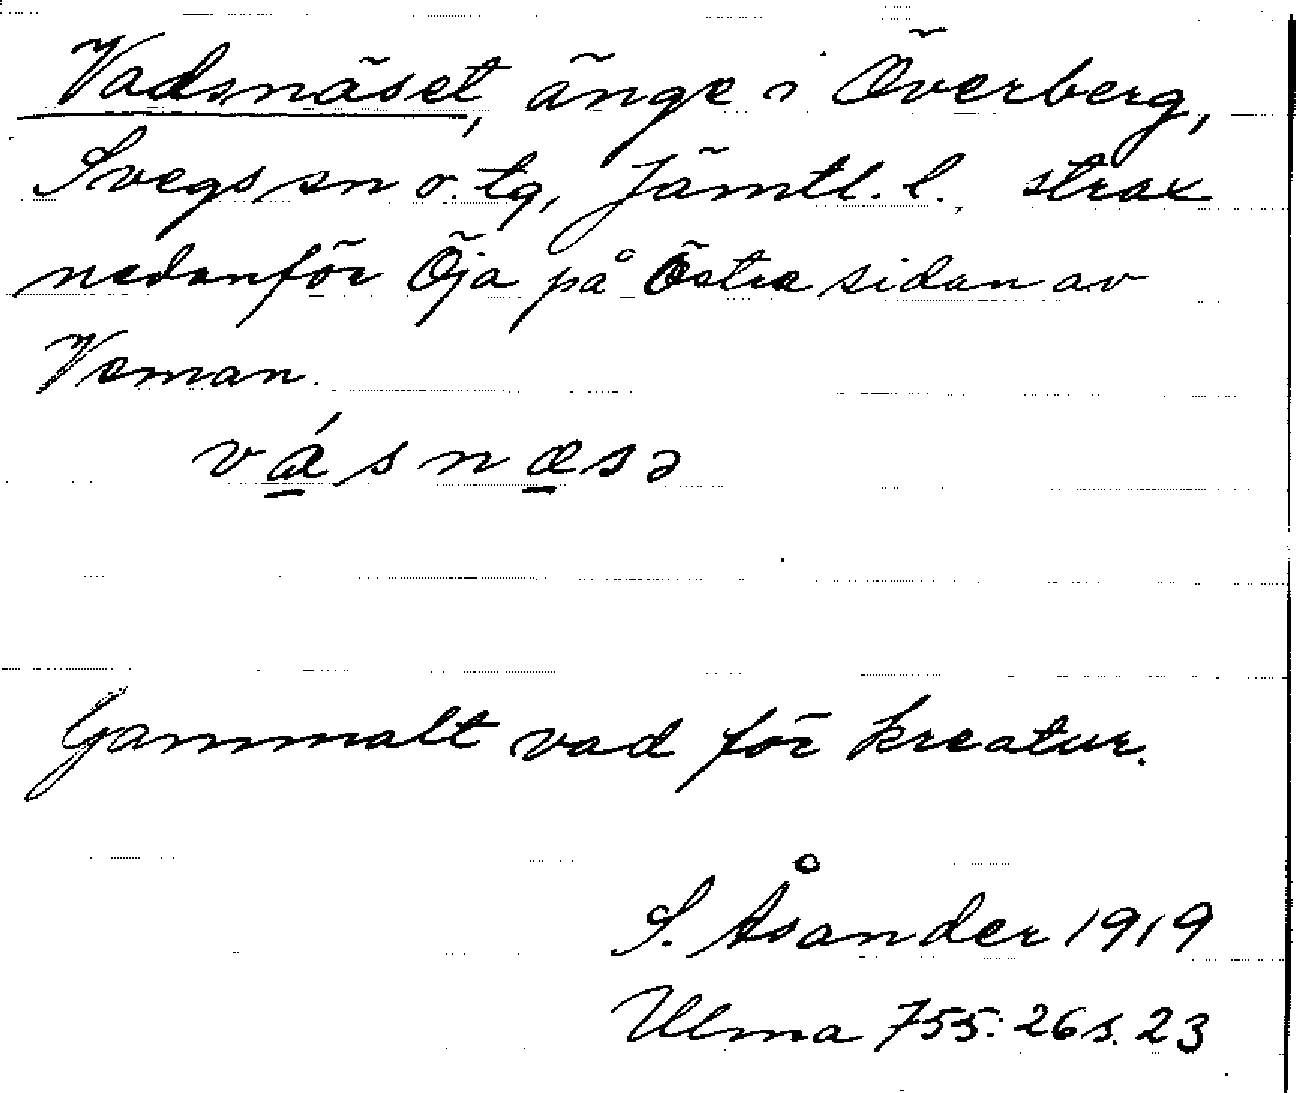 Vadsnäset, änge i Överberg,
Svegs sn o. tg, Jämtl. l. strax
nedanför Öja på Östra sidan av
Veman.
vásnæsə
Gammalt vad för kreatur.
S. Åsander 1919
Ulma 755:26 s. 23